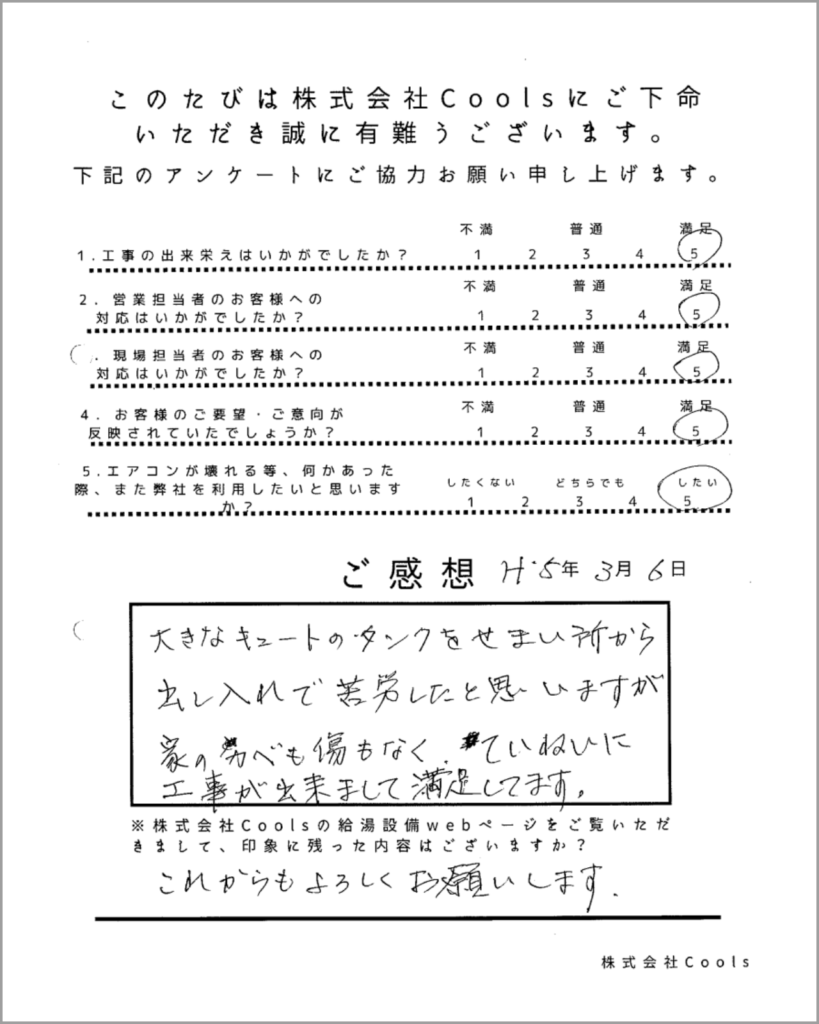 このたびは株式会社Coolsにご下命
いただき誠に有難うございます。
下記のアンケートにご協力お願い申し上げます。
不満 普通 満足
1.工事の出来栄えはいかがでしたか? 1 2 3 4 5
不満 普通 満足
2. 営業担当者のお客様への
対応はいかがでしたか? 1 2 3 4 5
不満 普通 満足
. 現場担当者のお客様への
対応はいかがでしたか? 1 2 3 4 5
不満 普通 満足
4. お客様のご要望・ご意向が
反映されていたでしょうか? 1 2 3 4 5
5.エアコンが壊れる等、何かあった
したくない どちらでも したい
際、また弊社を利用したいと思います
か? 1 2 3 4 5
ご感想 H·5年 3月 6日
大きなキュートのタンクをせまい所から
出し入れで苦労したと思いますが
家の かべも傷もなく、ていねいに
工事が出来まして満足してます。
※株式会社Coolsの給湯設備webページをご覧いただ
きまして、印象に残った内容はございますか?
これからもよろしくお願いします.
株式会社Cools